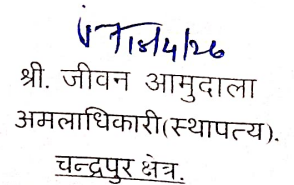 18/4/26
श्री. जीवन आमुदाला
अमलाधिकारी(स्थापत्य).
चन्द्रपुर क्षेत्र.